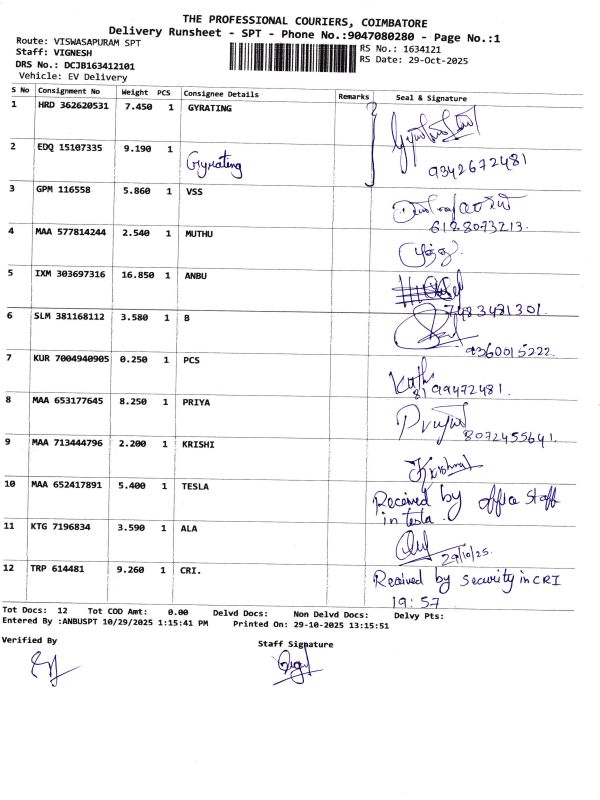 THE PROFESSIONAL COURIERS, COIMBATORE
Delivery Runsheet - SPT - Phone No.:9047080280 - Page No.:1
Route: VISWASAPURAM SPT
RS No.: 1634121
Staff: VIGNESH
RS Date: 29-Oct-2025
DRS No.: DCJB163412101
Vehicle: EV Delivery
S No Consignment No Weight PCS Consignee Details Remarks Seal & Signature
1 HRD 362620531 7.450 1 GYRATING
2 EDQ 15107335 9.190 1 Gyrating 9342672481
3 GPM 116558 5.860 1 VSS
6128073213.
4 MAA 577814244 2.540 1 MUTHU முத்து.
5 IXM 303697316 16.850 1 ANBU
7483481301.
6 SLM 381168112 3.580 1 B
9360015222.
7 KUR 7004940905 0.250 1 PCS
8199472481.
8 MAA 653177645 8.250 1 PRIYA
8072455641.
9 MAA 713444796 2.200 1 KRISHI
10 MAA 652417891 5.400 1 TESLA Received by office staff
in tesla.
11 KTG 7196834 3.590 1 ALA
29/10/25.
12 TRP 614481 9.260 1 CRI. Received by security in CRI
19:57
Tot Docs: 12 Tot COD Amt: 0.00 Delvd Docs: Non Delvd Docs: Delvy Pts:
Entered By :ANBUSPT 10/29/2025 1:15:41 PM Printed On: 29-10-2025 13:15:51
Verified By Staff Signature